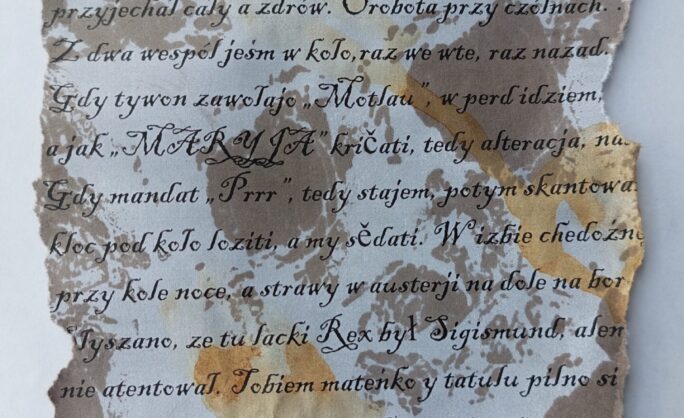 przyjechał cały a zdrów. Orobota przy czółnach.
Z dwa wespół jeśm w koło, raz we wte, raz nazad.
Gdy tywon zawołajo „Motlau”, w perd idziem,
a jak „MARYJA” kričati, tedy alteracja, na
Gdy mandat „Prrr”, tedy stajem, potym skantowa
kloc pod koło loziti, a my sědati. W izbie chedożn
przy kole noce, a strawy w austerji na dole na bor
Tyszano, ze tu lacki Rex był Sigismund, alen
nie atentował. Tobiem mateńko y tatulu pilno si